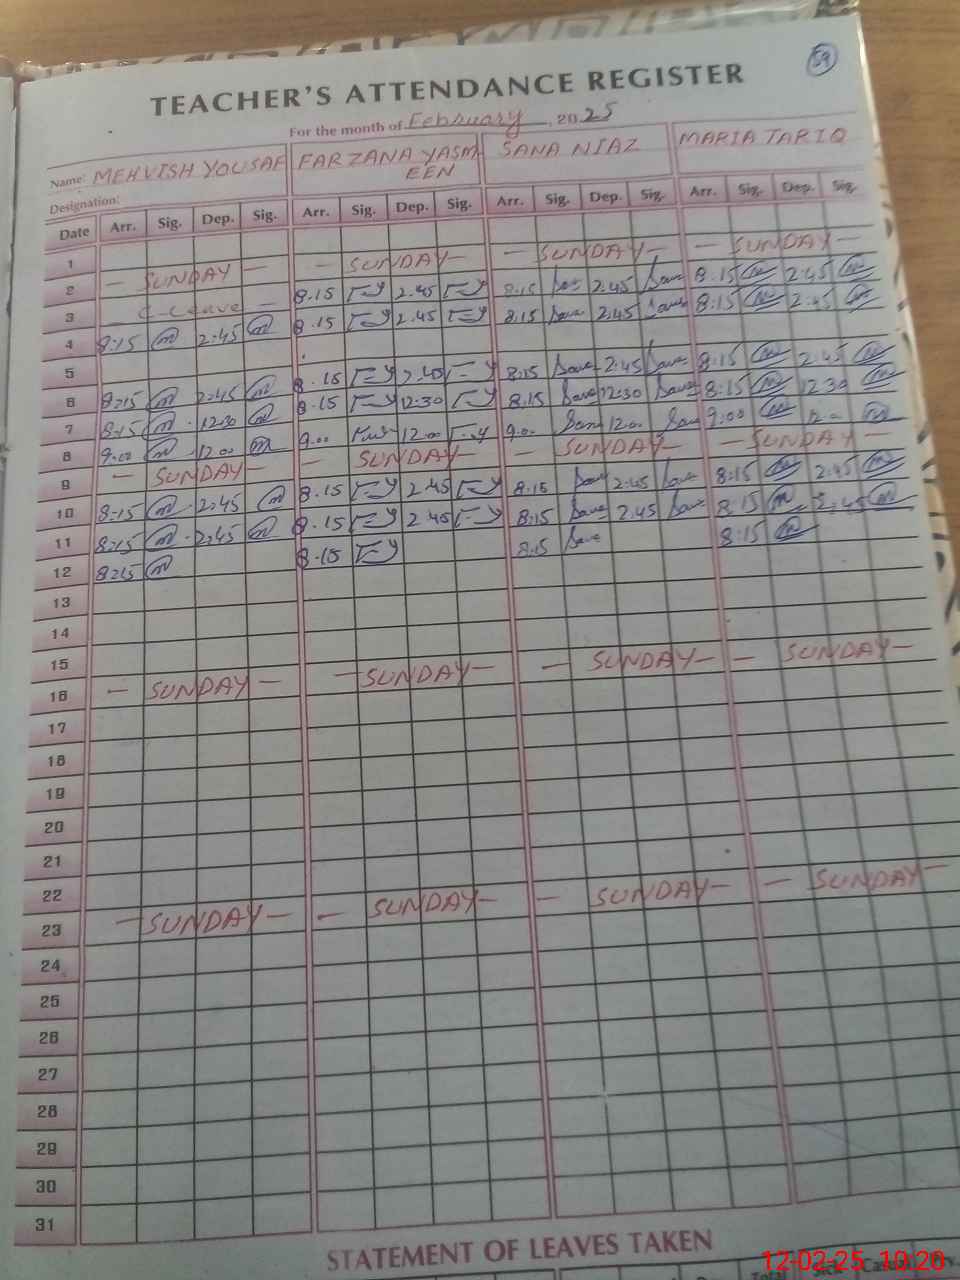 59
TEACHER'S ATTENDANCE REGISTER
For the month of February, 2025
Name: MEHVISH YOUSAF FARZANA YASMEEN SANA NIAZ MARIA TARIQ
Designation:
Date Arr. Sig. Dep. Sig. Arr. Sig. Dep. Sig. Arr. Sig. Dep. Sig. Arr. Sig. Dep. Sig.
1
2 - SUNDAY - - SUNDAY - - SUNDAY - - SUNDAY -
3 C-Leave - 8.15 2.45 8:15 2:45 8:15 2:45
4 8:15 2:45 8.15 2.45 8:15 2:45 8:15 2:45
5
6 8:15 2:45 8.15 2.45 8:15 2:45 8:15 2:45
7 8:15 12:30 8.15 12.30 8:15 12:30 8:15 12:30
8 9:00 12:00 9.00 12.00 9:00 12:00 9:00 12:00
9 - SUNDAY - - SUNDAY - - SUNDAY - - SUNDAY -
10 8:15 2:45 8.15 2.45 8:15 2:45 8:15 2:45
11 8:15 2:45 8.15 2.45 8:15 2:45 8:15 2:45
12 8:15 8.15 8:15 8:15
13
14
15
16 - SUNDAY - - SUNDAY - - SUNDAY - - SUNDAY -
17
18
19
20
21
22
23 - SUNDAY - - SUNDAY - - SUNDAY - - SUNDAY -
24
25
26
27
28
29
30
31
STATEMENT OF LEAVES TAKEN
Total Sick Casual
12-02-25 10:20